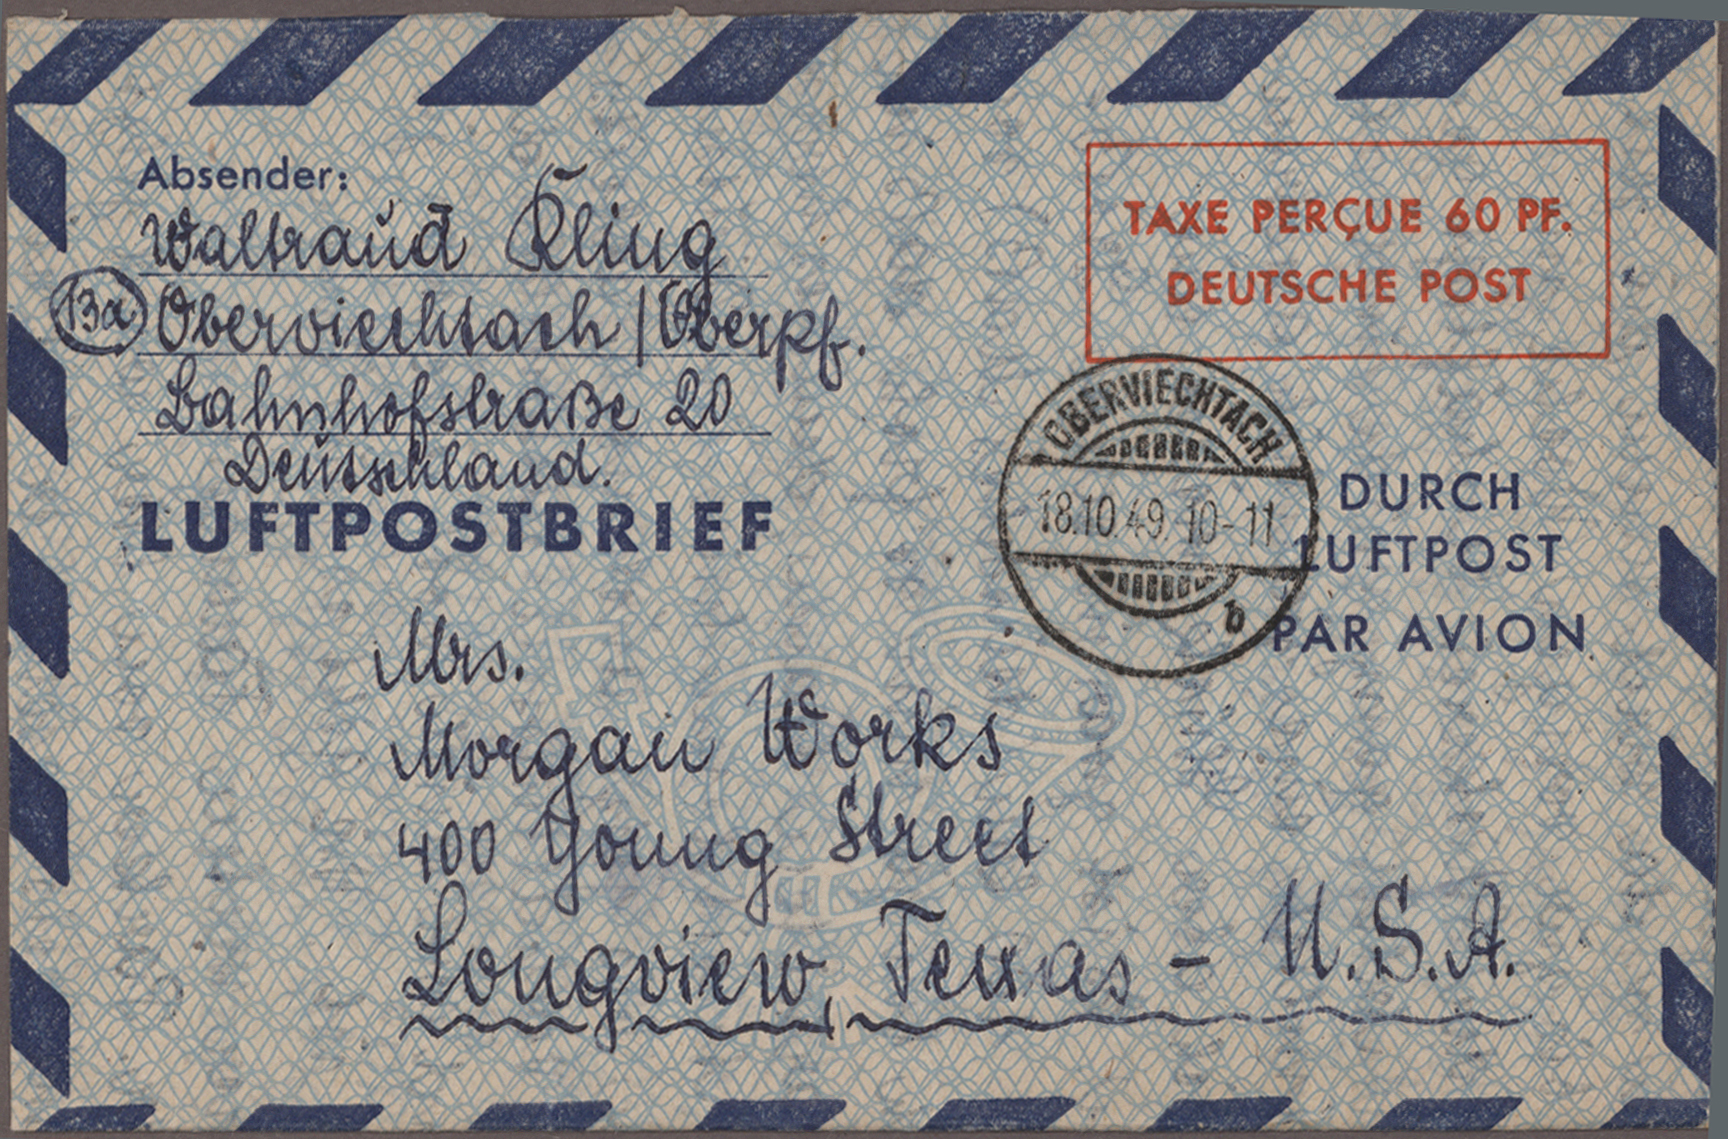 Absender:
Waltraud Kling
13a Oberviechtach / Oberpf.
Bahnhofstraße 20
Deutschland.
LUFTPOSTBRIEF
TAXE PERÇUE 60 PF.
DEUTSCHE POST
OBERVIECHTACH
18.10.49. 10-11
b
DURCH
LUFTPOST
PAR AVION
Mrs.
Morgan Works
400 Young Street
Longview, Texas - U.S.A.